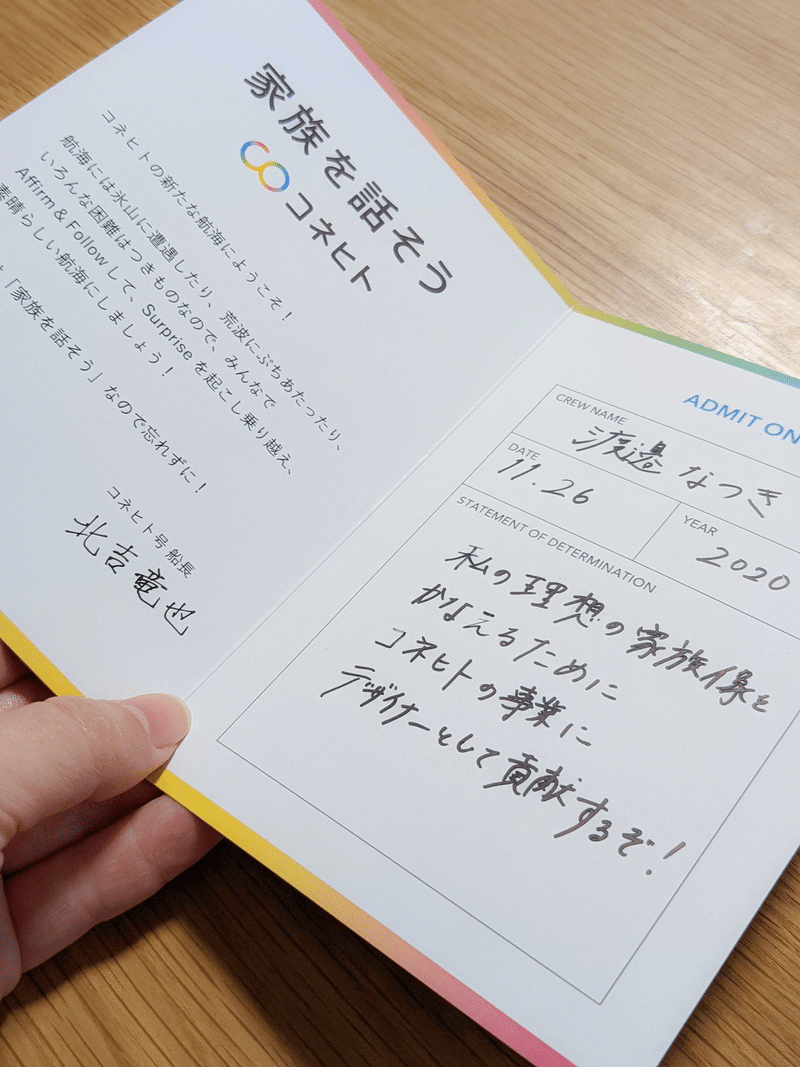 家族を話そう
コネヒト
コネヒトの新たな航海にようこそ！
航海には氷山に遭遇したり、荒波にぶちあたったり、
いろんな困難はつきものなので、みんなで
Affirm & Followして、Surpriseを起こし乗り越え、
素晴らしい航海にしましょう！
「家族を話そう」なので忘れずに！
コネヒト号 船長
北吉竜也
ADMIT ON
CREW NAME
渡邉 なつき
DATE
11.26
YEAR
2020
STATEMENT OF DETERMINATION
私の理想の家族像を
かなえるために
コネヒトの事業に
デザイナーとして貢献するぞ！